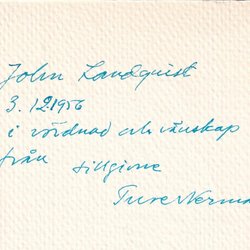 John Landquist
3.12.1956
i vördnad och vänskap
från tillgivne
Ture Nerma